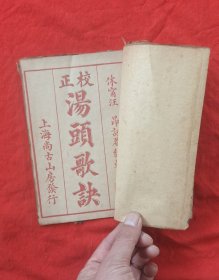 休甯汪
校正
湯頭歌訣
上海尚古山房發行